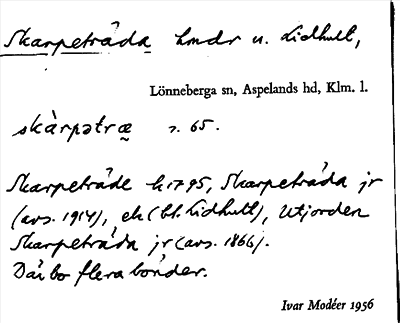 Skarpetråda hmdr u. Lidhult,
Lönneberga sn, Aspelands hd, Klm. l.
skàrpətræ s. 65.
Skarpetråde h 1795, Skarpetråda jr
(avs. 1914), ek (bl. Lidhult), Utjorden
Skarpetråda jr (avs. 1866).
Där bo flera bönder.
Ivar Modéer 1956